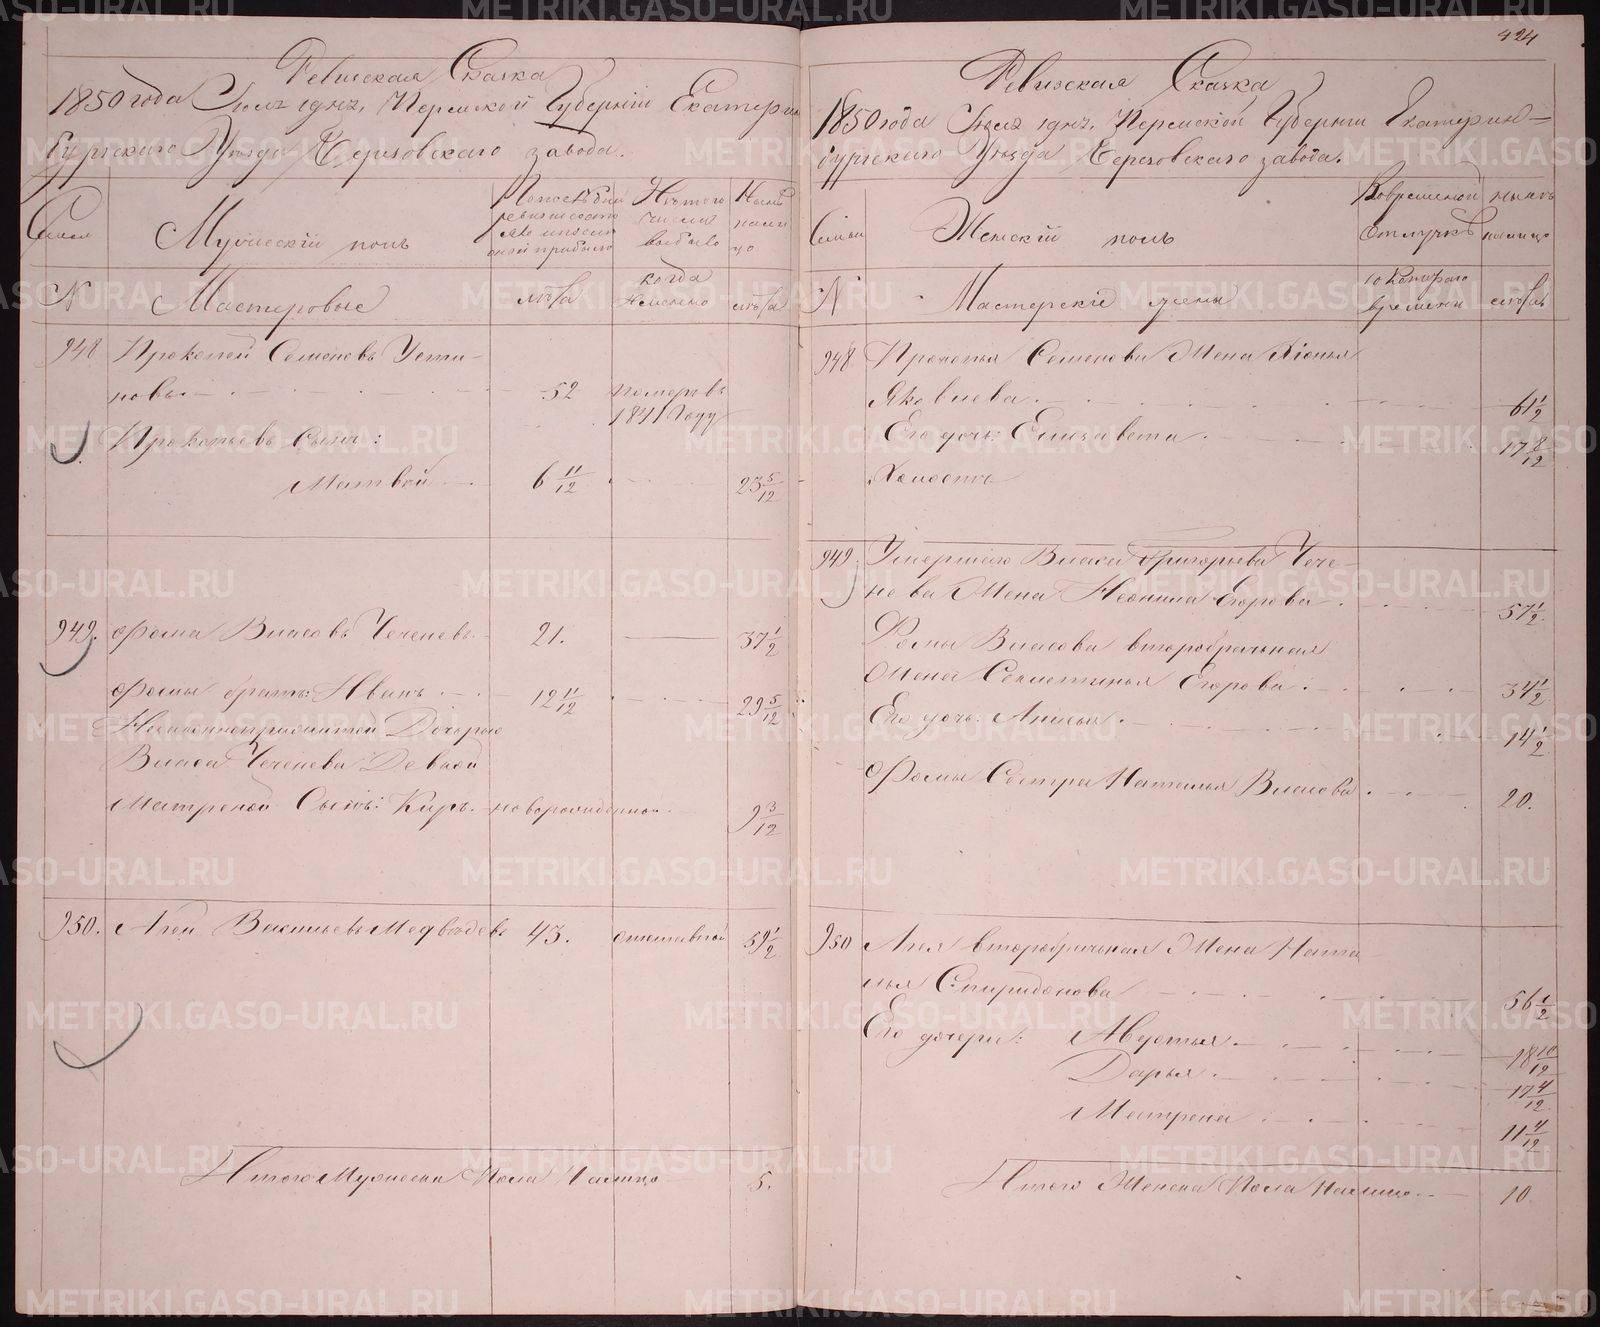 424
Ревизская Сказка
1850 года Июля 1 дня, Пермской Губернии Екатерин
бургского Уезда Березовского завода.
Семьи
Мужеский полъ
По последней ревизии состояло и после оной прибыло
Изъ того числа выбыло
Ныне налицо
N
Мастеровые
лета
когда именно
лета
948 Прокопей Семеновъ Усти-
новъ 52 померъ въ
1841 году
Прокопьевъ Сынъ:
Матвей 6 11/12 23 5/12
949. Фома Власовъ Чеченевъ 21. 37 1/2
Фомы братъ: Иванъ 12 11/12 29 5/12
Незаконноприжитой Дочерью
Власа Чеченева Девкой
Матреной Сынъ: Киръ новорожденной 9 3/12
950. Агей Васильевъ Медведевъ 43. отставной 59 1/2
Итого Мужеска Пола Налицо 5.
Ревизская Сказка
1850 года Июля 1 дня, Пермской Губернии Екатерин-
бургского Уезда Березовского завода.
Семьи
Женский полъ
Во временной отлучке
ныне налицо
N
Мастерские жены
съ котораго времени
лета
948 Прокопья Семенова Жена Хионья
Яковлева 61 1/2
Его дочь: Елизавета 17 8/12
949. Умершаго Власа Григорьева Чече-
нева Жена Неонила Егорова 57 1/2
Фомы Власова второбрачная
Жена Секлетинья Егорова 34 1/2
Его дочь: Анисья 14 1/2
Фомы Сестра Наталья Власова 20.
950 Агея второбрачная Жена Ната
лья Спиридонова 56 1/2
Его дочери: Августья 18 10/12
Дарья 17 4/12
Матрена 11 4/12
Итого Женска Пола Налицо 10
METRIKI.GASO-URAL.RU